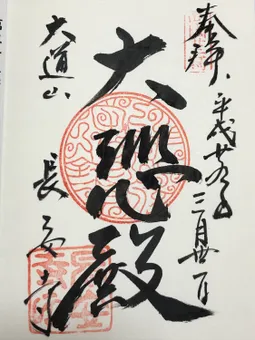 奉拝
平成廿九年
三月
大悲殿
大道山
長安寺